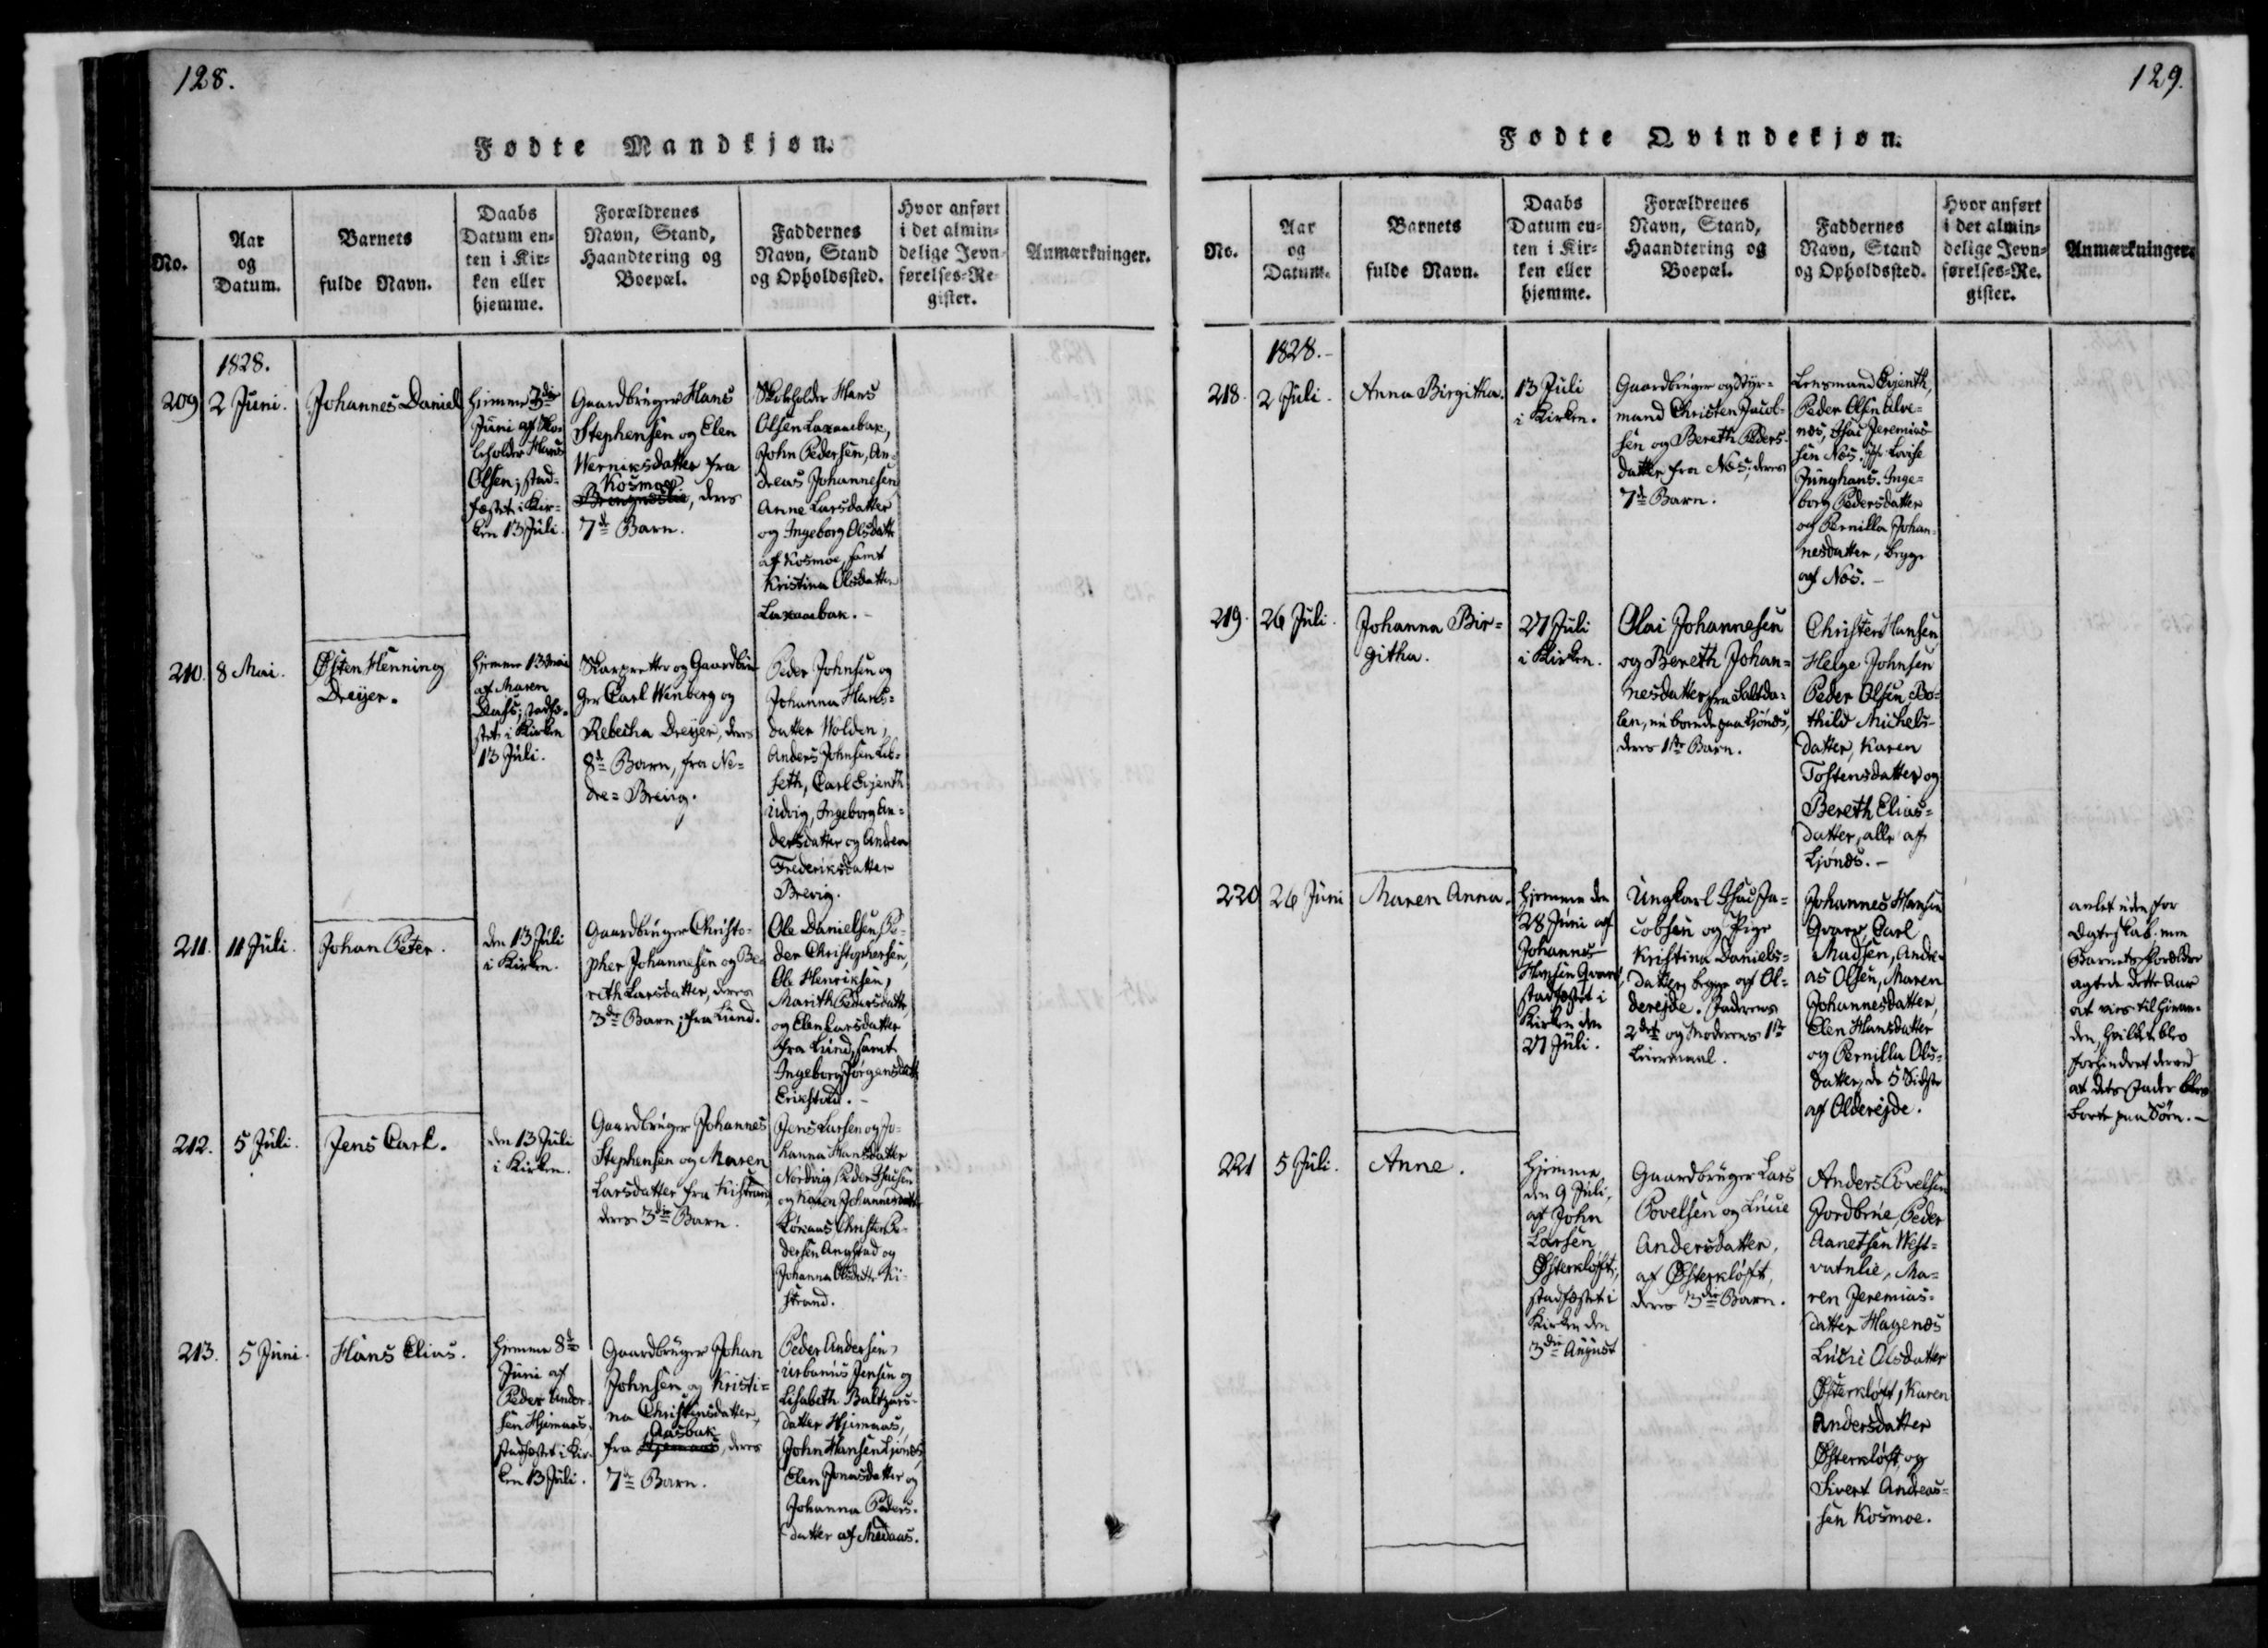 128.
Fødte Mandkjøn.
No.
Aar
og
Datum.
Barnets
fulde Navn.
Daabs
Datum en-
ten i Kir-
ken eller
hjemme.
Forældrenes
Navn, Stand,
Haandtering og
Boepæl.
Faddernes
Navn, Stand
og Opholdssted.
Hvor anført
i det almin-
delige Jevn-
førelses-Re-
gister.
Anmærkninger.
1828.
209
2 Juni.
Johannes Daniel
hjemme 3die
Juni af Sko-
leholder Hans
Olsen; stad-
fæstet i Kir-
ken 13 Juli.
Gaardbruger Hans
Stephensen og Elen
Werniksdatter fra
Kosmoe
, deres
7de Barn.
Skoleholder Hans
Olsen Laxaabak,
John Pedersen, An-
dreas Johannesen
Anne Larsdatter
og Ingeborg Olsdatt
af Kosmoe, samt
Kristina Olsdatter
Laxaabak. -
210.
8 Mai.
Østen Henning
Dreyer.
hjemme 13 Mai
af Maren
stadfæ-
stet i Kirken
13 Juli.
Skarpretter og Gaardbru-
ger Carl Wenberg og
Rebecha Dreyer, deres
8de Barn, fra Ne-
dre-Breivig.
Peder Johnsen og
Johanna Hans-
datter Wolden,
Anders Johnsen Leb-
seth, Carl Evjenth
Udvig, Ingeborg An-
dersdatter og Andrea
Frederiksdatter
Brevig.
211.
11 Juli.
Johan Peter.
den 13 Juli
i Kirken.
Gaardbruger Christo-
pher Johannesen og Be-
reth Larsdatter, deres
3die Barn; fra Lund.
Ole Danielsen, Pe-
der Christophersen,
Ole Henriksen,
Marith Pedersdatter
og Elen Larsdatter
fra Lund, samt
Ingeborg Jørgensdatt
Erikstad. -
212.
5 Juli.
Jens Carl.
den 13 Juli
i Kirken.
Gaardbruger Johannes
Stephensen og Maren
Larsdatter fra Kistrand,
deres 3die Barn.
Jens Larsen og Jo-
hanna Hansdatter
Nordvig, Peder Isacsen
og Karen Johannesdatter
Christen Pe-
dersen Angstad og
Johanna Olsdatter Ki-
strand.
213.
5 Juni.
Hans Elias.
hjemme 8de
Juni af
Peder Ander-
sen Hjemaas,
stadfæstet i Kir-
ken 13 Juli.
Gaardbruger Johan
Johnsen og Kristi-
na Christensdatter,
Aasbak
fra Hjemaas, deres
7de Barn.
Peder Andersen,
Urbanus Jensen og
Lisabeth Baltzars-
datter Hjemaas,
John Hansen Ljønes,
Elen Jonasdatter og
Johanna Peders-
datter af Medaas.
129.
Fødte Qvindekjøn.
No.
Aar
og
Datum.
Barnets
fulde Navn.
Daabs
Datum en-
ten i Kir-
ken eller
hjemme.
Forældrenes
Navn, Stand,
Haandtering og
Boepæl.
Faddernes
Navn, Stand
og Opholdssted.
Hvor anført
i det almin-
delige Jevn-
førelses-Re-
gister.
Anmærkninger.
1828. -
218.
2 Juli.
Anna Birgitha.
13 Juli
i Kirken.
Gaardbruger og Styr-
mand Christen Jacob-
sen og Bereth Peders-
datter fra Næs, deres
7de Barn.
Lensmand Evjenth,
Peder Olsen Alve-
næs, Isac Jeremias-
sen Næs, Jfr Lovise
Junghans. Inge-
borg Pedersdatter
og Pernilla Johan-
nesdatter, begge
af Næs. -
219.
26 Juli.
Johanna Bir-
githa.
27 Juli
i Kirken.
Olai Johannesen
og Bereth Johan-
nesdatter fra Saltda-
len, nu boende paa Ljønæs,
deres 1ste Barn.
Christen Hansen
Helge Johnsen
Peder Olsen, Bo-
thild Michels-
datter, Karen
Tostensdatter og
Bereth Elias-
datter, alle af
Ljønæs. -
220
26 Juni
Maren Anna.
hjemme den
28 Juni af
Johannes
Hansen Qvarv,
stadfæstet i
Kirken den
27 Juli.
Ungkarl Isac Ja-
cobsen og Pige
Kristina Daniels-
datter, begge af Ol-
derejde. Faderens
2det og Moderens 1ste
Leiermaal.
Johannes Hansen
Qvarv, Carl
Madsen, Andre-
as Olsen, Maren
Johannesdatter,
Elen Hansdatter
og Pernilla Ols-
datter, de 5 Sidste
af Olderejde.
avlet uden for
Ægteskab. men
Barnets Forældre
agtede dette Aar
at vies til hinan-
den, hvilket blev
forhindret derved
at dets Fader blev
borte paa Søen. -
221
5 Juli.
Anne.
hjemme
den 9 Juli,
af John
Larsen
Østerkløft,
stadfæstet i
Kirken den
3die August
Gaardbruger Lars
Povelsen og Lucie
Andersdatter,
af Østerkløft,
deres 3die Barn.
Anders Povelsen
Jordbrue, Peder
Aanetsen West-
vatnlie, Ma-
ren Jeremias-
datter Hagenæs
Lucie Olsdatter
Østerkløft, Karen
Andersdatter
Østerkløft, og
Sivert Andreas-
sen Kosmoe.